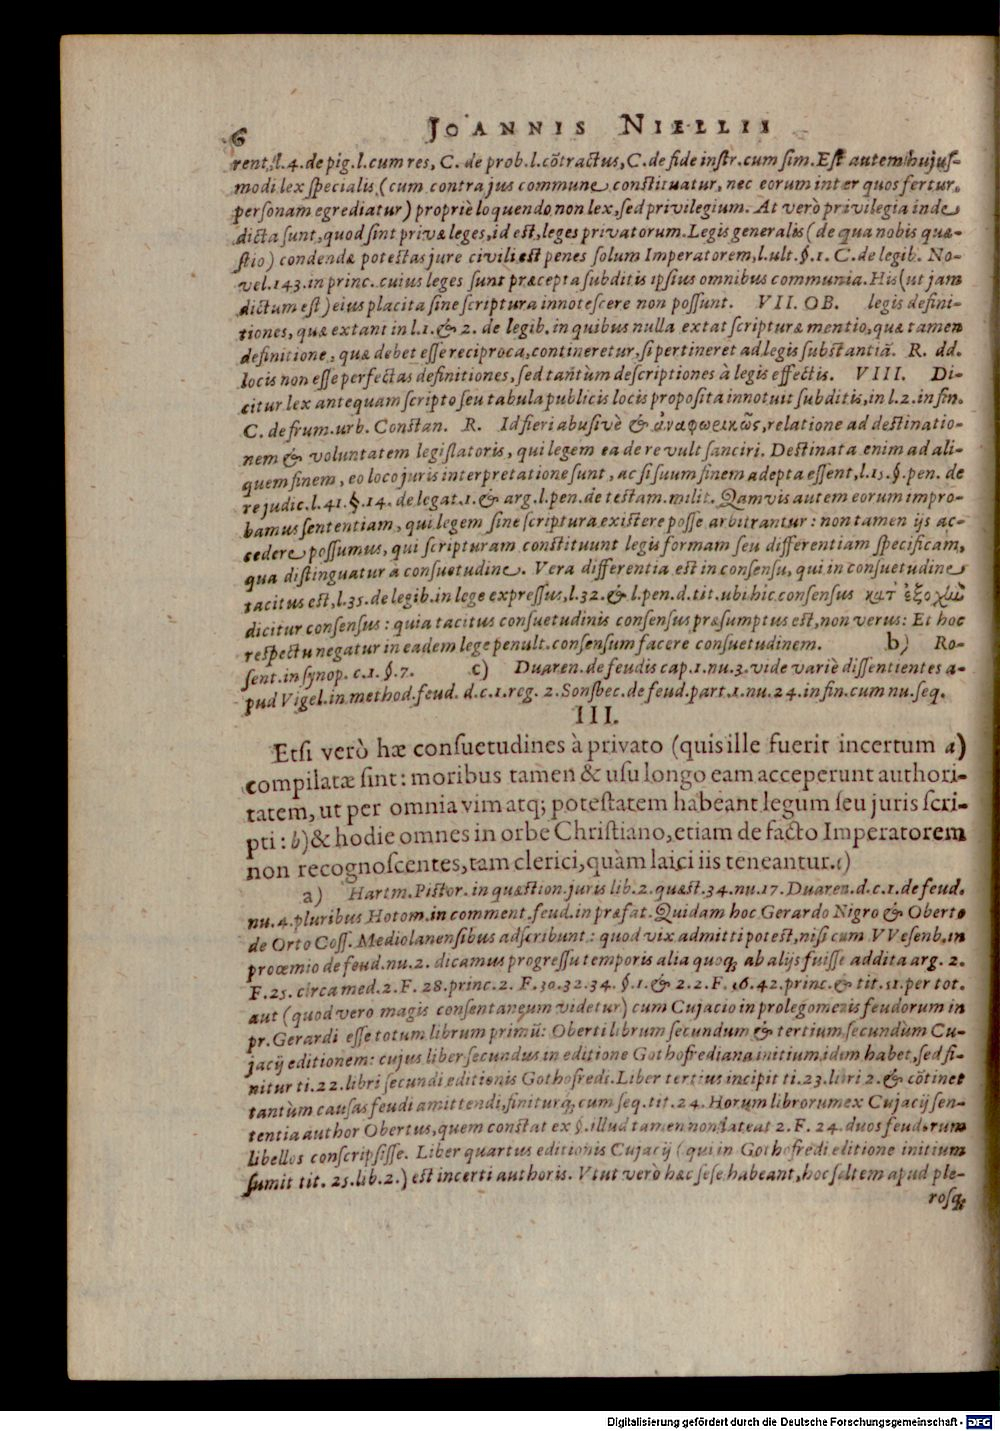 6 JOANNIS NIELLII
rent, l. 4. de pig. l. cum res, C. de prob. l. cõtractus, C. de fide instr. cum sim. Est autem hujus-
modi lex specialis (cum contra jus commune constituatur, nec eorum inter quos fertur,
personam egrediatur) propriè loquendo non lex, sed privilegium. At verò privilegia inde
dicta sunt, quod sint privæ leges, id est, leges privatorum. Legis generalis (de qua nobis quæ-
stio) condendæ potestas jure civili est penes solum Imperatorem, l. ult. §. 1. C. de legib. No-
vel. 143. in princ. cuius leges sunt præcepta subditis ipsius omnibus communia. His (ut jam
dictum est) eius placita sine scriptura innotescere non possunt. VII. OB. legis defini-
tiones, quæ extant in l. 1. & 2. de legib. in quibus nulla extat scripturæ mentio, quæ tamen
definitione, quæ debet esse reciproca, contineretur, si pertineret ad legis substantiã. R. dd.
locis non esse perfectas definitiones, sed tantùm descriptiones à legis effectis. VIII. Di-
citur lex antequam scripto seu tabula publicis locis proposita innotuit subditis, in l. 2. in fin.
C. de frum. urb. Constan. R. Id fieri abusivè & ἀναφωρικῶς, relatione ad destinatio-
nem & voluntatem legislatoris, qui legem ea de re vult sanciri. Destinata enim ad ali-
quem finem, eo loco juris interpretatione sunt, ac si suum finem adepta essent, l. 15. §. pen. de
re judic. l. 41. §. 14. de legat. 1. & arg. l. pen. de testam. milit. Qamvis autem eorum impro-
bamus sententiam, qui legem sine scriptura existere posse arbitrantur: non tamen ijs ac-
cedere possumus, qui scripturam constituunt legis formam seu differentiam specificam,
qua distinguatur à consuetudine. Vera differentia est in consensu, qui in consuetudine
tacitus est, l. 35. de legib. in lege expressus, l. 32. & l. pen. d. tit. ubi hic consensus κατ' ἐξοχὴν
dicitur consensus: quia tacitus consuetudinis consensus præsumptus est, non verus: Et hoc
respectu negatur in eadem lege penult. consensum facere consuetudinem. b) Ro-
sent. in synop. c. 1. §. 7. c) Duaren. de feudis cap. 1. nu. 3. vide variè dissentientes a-
pud Vigel. in method. feud. d. c. 1. reg. 2. Sonsbec. de feud. part. 1. nu. 24. in fin. cum nu. seq.
III.
Etsi verò hæ consuetudines à privato (quis ille fuerit incertum a)
compilatæ sint: moribus tamen & usu longo eam acceperunt authori-
tatem, ut per omnia vim atq; potestatem habeant legum seu juris scri-
pti: b) & hodie omnes in orbe Christiano, etiam de facto Imperatorem
non recognoscentes, tam clerici, quàm laici iis teneantur. c)
a) Hartm. Pistor. in quæstion. juris lib. 2. quæst. 34. nu. 17. Duaren. d. c. 1. de feud.
nu. 4. pluribus Hotom. in comment. feud. in præfat. Quidam hoc Gerardo Nigro & Oberto
de Orto Coss. Mediolanensibus adscribunt: quod vix admitti potest, nisi cum VVesenb. in
proœmio de feud. nu. 2. dicamus progressu temporis alia quoq; ab alijs fuisse addita arg. 2.
F. 25. circa med. 2. F. 28. princ. 2. F. 30. 32. 34. §. 1. & 2. 2. F. 16. 42. princ. & tit. 51. per tot.
aut (quod vero magis consentaneum videtur) cum Cujacio in prolegomenis feudorum in
pr. Gerardi esse totum librum primũ: Oberti librum secundum & tertium, secundùm Cu-
jacij editionem: cujus liber secundus in editione Gothofrediana initium idem habet, sed fi-
nitur ti. 22. libri secundi editionis Gothofredi. Liber tertius incipit ti. 23. libri 2. & cõtinet
tantùm causas feudi amittendi, finiturq; cum seq. tit. 24. Horum librorum ex Cujacij sen-
tentia author Obertus, quem constat ex §. illud tamen non lateat 2. F. 24. duos feudorum
libellos conscripsisse. Liber quartus editionis Cujacij (qui in Gothofredi editione initium
sumit tit. 25. lib. 2.) est incerti authoris. Vtut verò hæc sese habeant, hoc saltem apud ple-
rosq;
Digitalisierung gefördert durch die Deutsche Forschungsgemeinschaft - DFG